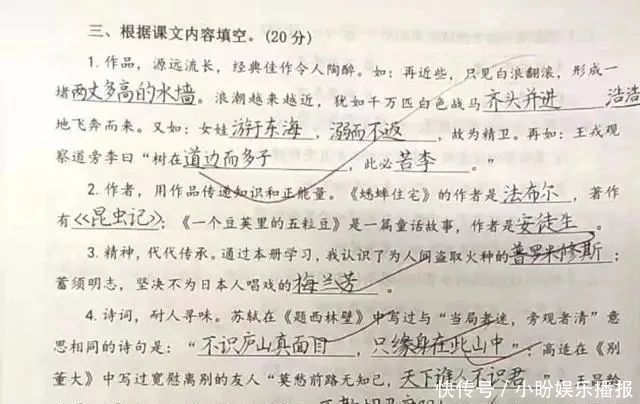 三、根据课文内容填空。(20分)
1. 作品，源远流长，经典佳作令人陶醉。如：再近些，只见白浪翻滚，形成一
堵两丈多高的水墙。浪潮越来越近，犹如千万匹白色战马齐头并进 浩浩
地飞奔而来。又如：女娃游于东海，溺而不返，故为精卫。再如：王戎观
察道旁李曰“树在道边而多子，此必苦李。”
2. 作者，用作品传递知识和正能量。《蟋蟀住宅》的作者是法布尔，著作
有《昆虫记》；《一个豆荚里的五粒豆》是一篇童话故事，作者是安徒生。
3. 精神，代代传承。通过本册学习，我认识了为人间盗取火种的普罗米修斯；
蓄须明志，坚决不为日本人唱戏的梅兰芳。
4. 诗词，耐人寻味。苏轼在《题西林壁》中写过与“当局者迷，旁观者清”意
思相同的诗句是：“不识庐山真面目，只缘身在此山中”；高适在《别
董大》中写过宽慰离别的友人“莫愁前路无知己，天下谁人不识君”
快传号／小盼娱乐播报